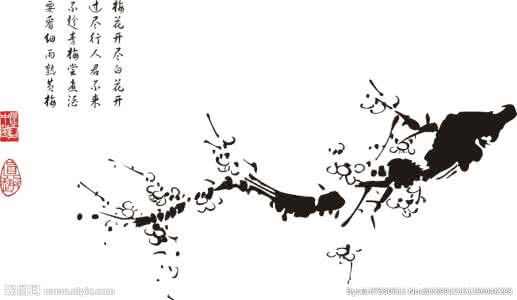 梅花开尽白花开
过尽行人君不来
不趁青梅尝煮酒
要看细雨熟黄梅
昵图网 www.nipic.com